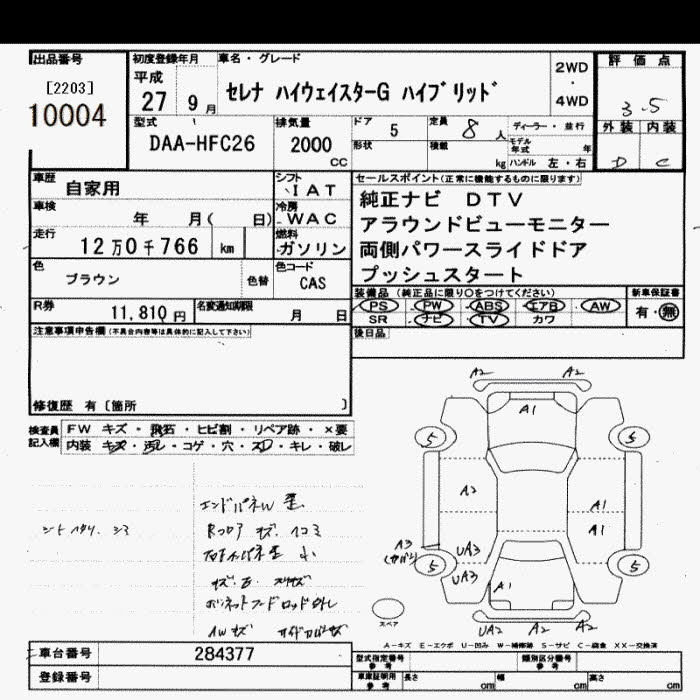 出品番号 初度登録年月 車名・グレード 2WD・4WD 評価点
[2203] 平成
10004 27 9月 セレナ ハイウェイスターG ハイブリッド 3.5
型式 排気量 ドア 5 定員 8人 ディーラー・並行 外装 内装
DAA-HFC26 2000 CC 形状 積載 kg モデル年式 年 ハンドル 左・右 D C
車歴 自家用 シフト IAT セールスポイント(正常に機能するものに限ります)
車検 年 月( 日) 冷房 WAC 純正ナビ DTV
走行 12万0千766 km 燃料 ガソリン アラウンドビューモニター
色 ブラウン 色替 色コード CAS 両側パワースライドドア
プッシュスタート
R券 11,810円 名変通知期限 月 日 装備品 (純正品に限り○をつけてください) 新車保証書
PS PW ABS エアB AW 有・無
SR ナビ TV カワ
注意事項申告欄(不具合内容等は具体的に記入して下さい) 後日品
修復歴 有〔箇所 〕
検査員記入欄 FW キズ・飛石・ヒビ割・リペア跡・×要
内装 キズ・汚レ・コゲ・穴・スレ・キレ・破レ
A2 A2
A1
5 5
A2 A1
A1
A3 UA3
5 UA3 5
A1
UA2 A2 A2
エンドパネル 歪
シートヘタリ、シミ Rフロア キズ、凹コミ
小
ボンネットフードロッド外レ
AWキズ
スペア
A-キズ E-エクボ U-凹み W-補修跡 S-サビ C-腐食 XX-交換済
車台番号 284377 型式指定番号 参考 類別区分番号 参考
登録番号 車庫証明用 参考 長さ cm 幅 cm 高さ cm